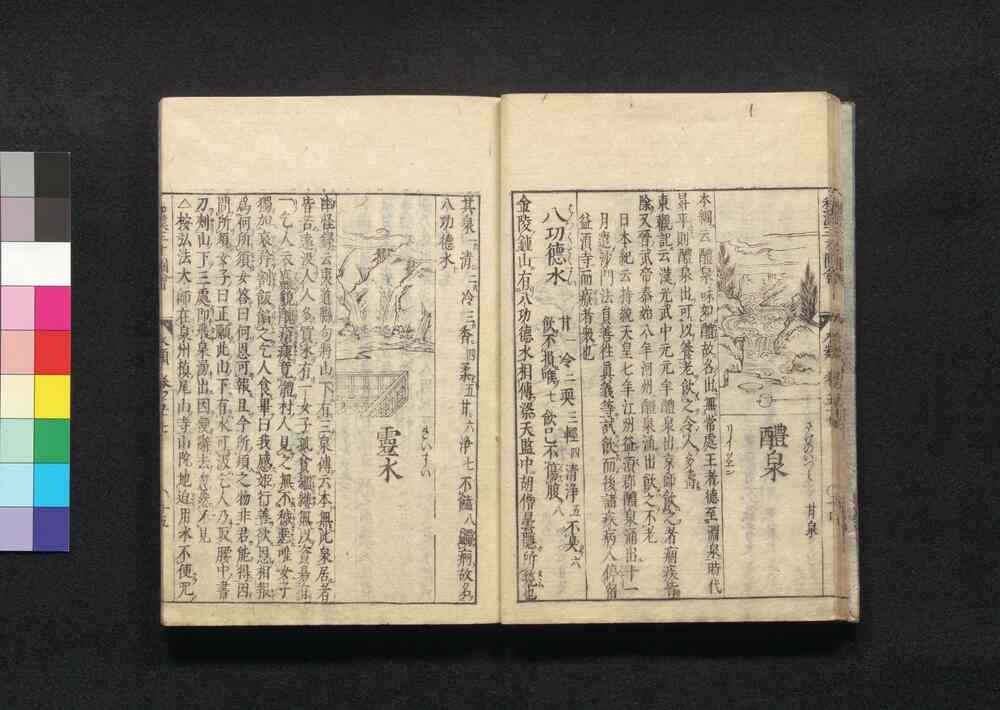 醴泉
甘泉
本綱云醴泉味如醴故名出無常處王者德至淵泉時代
昇平則醴泉出可以養老飲之令人多壽
東觀記云漢光武中元元年醴泉出京師飲之者痼疾皆
除又晉武帝泰始八年河州醴泉涌出飲之不老
日本紀云持統天皇七年江州益須郡醴泉涌出十一
月遣沙門法員善往眞義等試飲而後諸疾病人停宿
益須寺而療者衆也
八功德水
甘一冷二耎三輕四清淨五不臭六
飲不損喉七飲已不傷腹八
金陵鍾山有八功德水相傳梁天監中胡僧曇隱所
其泉一清二冷三香四柔五甘六淨七不饐八蠲痾故名
八功德水
靈水
幽怪錄云東道縣句將山下有三泉傳云本無此泉居者
皆苦遠汲人人多賣水有一女子孤貧
一乞人衣
獨加哀矜割飯飼之乞人食畢曰我感姫行善欲思相報
爲何所須女答曰何恩可報且今所須之物非君能得因
問所須女子曰正願此山下有水可汲乞人乃取腰中書
刀刺山下三處即飛泉涌出因
△按弘法大師在泉州槇尾山寺山院地迫用水不便咒